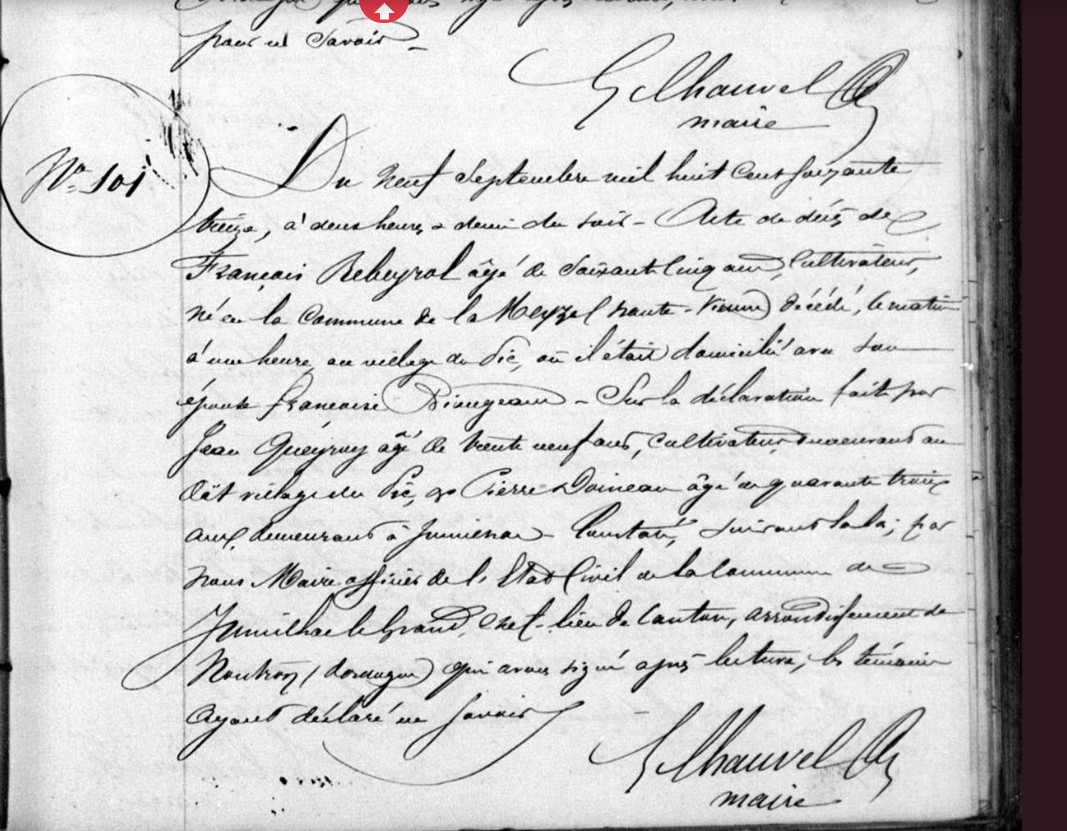 pour et Savoir
G Chauvel
maire
No 101
Du neuf Septembre mil huit Cent soixante
treize, à deux heures & demi du soir - Acte de décès de
François Rebeyrol âgé de soixante Cinq ans, Cultivateur,
né en la Commune de la Meyze (haute-Vienne) décédé, le matin
à une heure, au village du Pic, où il était domicilié avec son
épouse françoise - Sur la déclaration fait par
Jean Queyroy âgé de trente neuf ans, cultivateur demeurant au
dit village du Pic, et Pierre Doineau âgé de quarante trois
ans, demeurant à Jumilhac - Constaté, suivant la loi, par
nous Maire officier de l'Etat Civil de la Commune de
Jumilhac le Grand, Chef-lieu de Canton, arrondissement de
Nontron (dordogne) qui avons signé après lecture, les témoins
ayant déclaré ne savoir
G Chauvel
maire